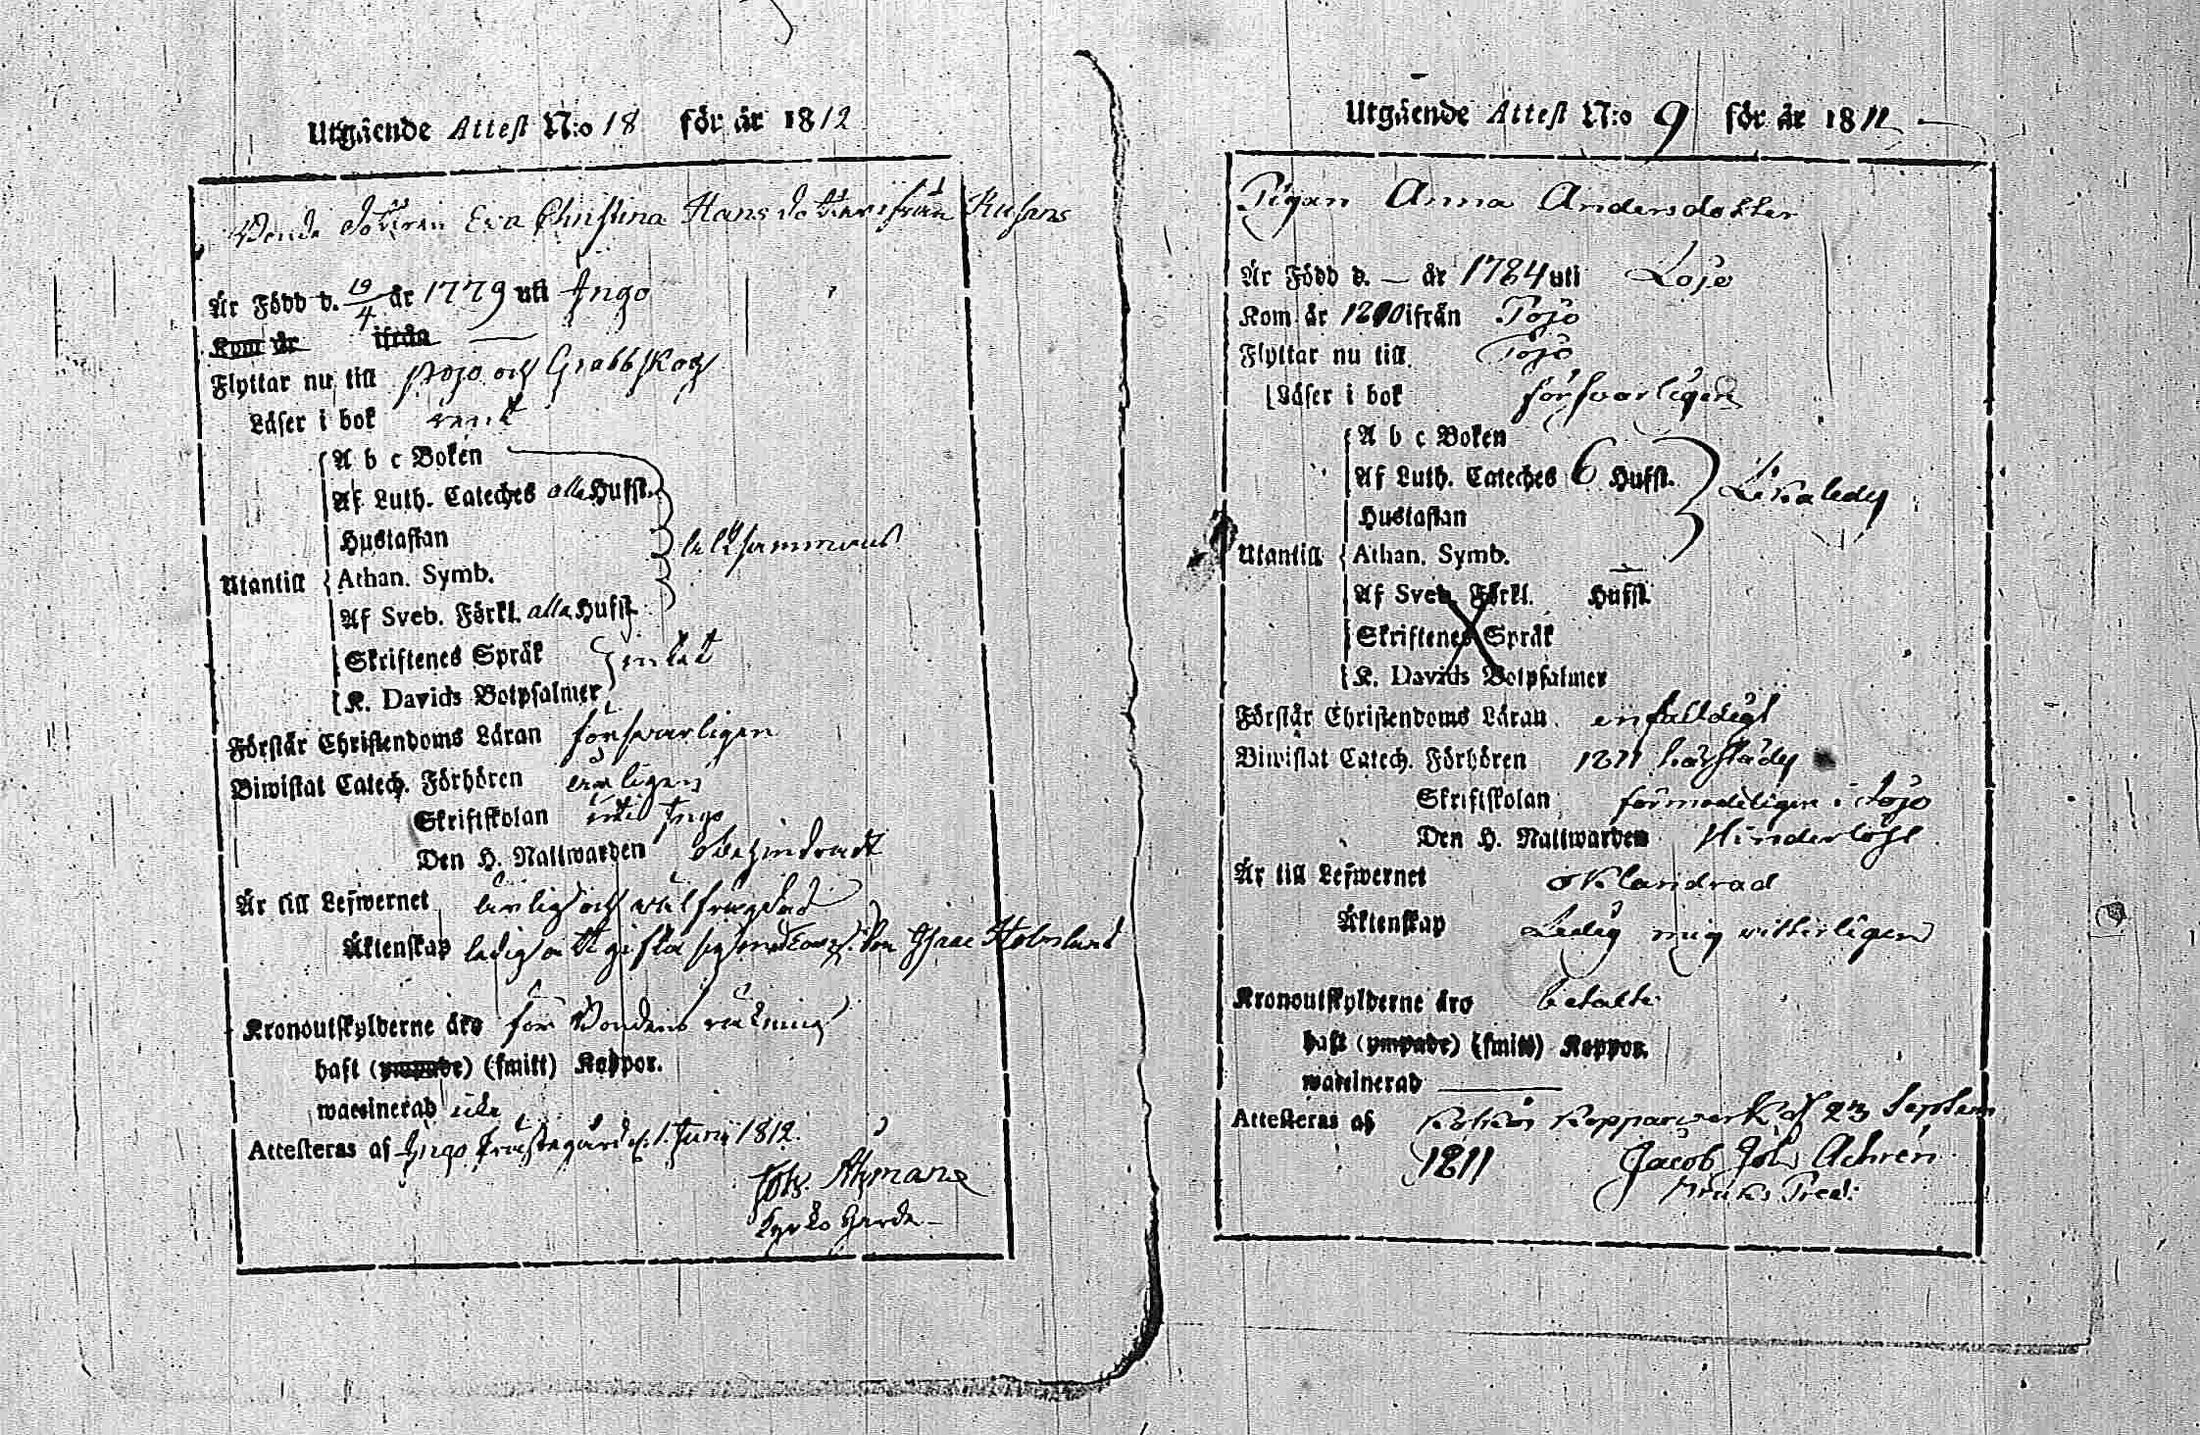 Utgående Attest N:o 18 för år 1812
Bonde dotteren Eva Christina Hansdotter ifrån Kusans
Är Född d. 19/4 år 1779 uti Ingo
Kom år ifrån —
Flyttar nu till Pojo och Grabbskog
Läser i bok rent
A b c Boken
Af Luth. Cateches alla Hufst.
Hustaflan
Utantill Athan. Symb.
Af Sveb. Förkl. alla Hufst.
Skriftenes Språk
K. Davids Botpsalmer
Förstår Christendoms Läran försvarligen
Biwistat Catech. Förhören
Skriftskolan uti Ingo
Den H. Nattwarden obehindradt
Är till Lefwernet ärlig och välfrägdad
Äktenskap ledig att gifta sig med Isaac
Kronoutskylderne äro för Bondens räkning
haft (ympade) (smitt) Koppor.
waccinerad icke
Attesteras af Ingo Prästegård d. 1. Junii 1812.
Joh.
Utgående Attest N:o 9 för år 1811
Pigan Anna Andersdotter
Är Född d. — år 1784 uti Lojo
Kom år 1810 ifrån Pojo
Flyttar nu till Pojo
Läser i bok försvarligen
A b c Boken
Af Luth. Cateches 6 Hufst.
Hustaflan
Utantill Athan. Symb.
Af Sveb. Förkl. — Hufst.
Skriftenes Språk
K. Davids Botpsalmer
Förstår Christendoms Läran enfaldigt
Biwistat Catech. Förhören 1811 härstädes
Skriftskolan förmodeligen i Lojo
Den H. Nattwarden Hinderlöst
Är till Lefwernet oklandrad
Äktenskap Ledig mig vitterligen
Kronoutskylderne äro betalte
haft (ympade) (smitt) Koppor.
waccinerad —
Attesteras af Kopparwerk d. 23 Septem
1811 Jacob Joh Achrén
Bruks Pred: